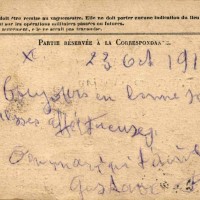 doit être remise au vaguemestre. Elle ne doit porter aucune indication du lieu
sur les opérations militaires passées ou futures.
, il ne serait pas transmise.
PARTIE RÉSERVÉE A LA CORRESPONDAN
23 Oct 191
Toujours en bonne
affectueuses
Ton mari qui t'aime
Gustave